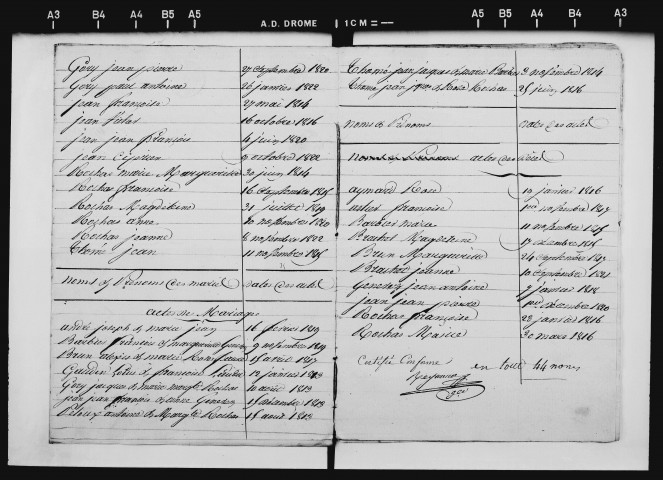 A3 B4 A4 B5 A5 A.D. DROME 1CM A5 B5 A4 B4 A3
Gery jean pierre 27 septembre 1820
Gery paul antoine 26 janvier 1822
jean françoise 27 mai 1814
jean 16 octobre 1816
jean jean françois 4 juin 1820
jean Ciprien 9 octobre 1822
Rochas marie Margueritte 20 juin 1814
Rochas françoise 16 septembre 1815
Rochas Magdeleine 21 juillet 1819
Rochas anne 20 novembre 1820
Rochas jeanne 8 novembre 1822
Thomé jean 11 novembre 1815
noms et Prenoms des mariés dates des actes
actes de Mariages
andré joseph et marie jean 16 fevrier 1819
Barbier françois et margueritte 9 novembre 1819
Brun alexis et marie 15 avril 1817
et françoise 12 janvier 1813
Gery jacques et marie marg.te Rochas 10 avril 1813
jean jean françois et 15 décembre 1813
antoine et Marg.te Rochas 15 aout 1813
Thomé jean jacques et marie Barbier 3 novembre 1814
Thomé jean et Rose Rochas 25 juin 1816
noms et Prenoms dates des actes
actes de décès
aymard Rose 19 janvier 1816
françoise 1er novembre 1817
Barbier marie 11 novembre 1815
Brachet Magdeleine 17 décembre 1815
Brun Margueritte 24 septembre 1817
Brachet jeanne 10 septembre 1821
Gendrey jean antoine 7 janvier 1818
jean jean pierre 1er décembre 1820
Rochas françoise 28 janvier 1816
Rochas Marie 20 mars 1816
Certifié Conforme en tout 44 noms